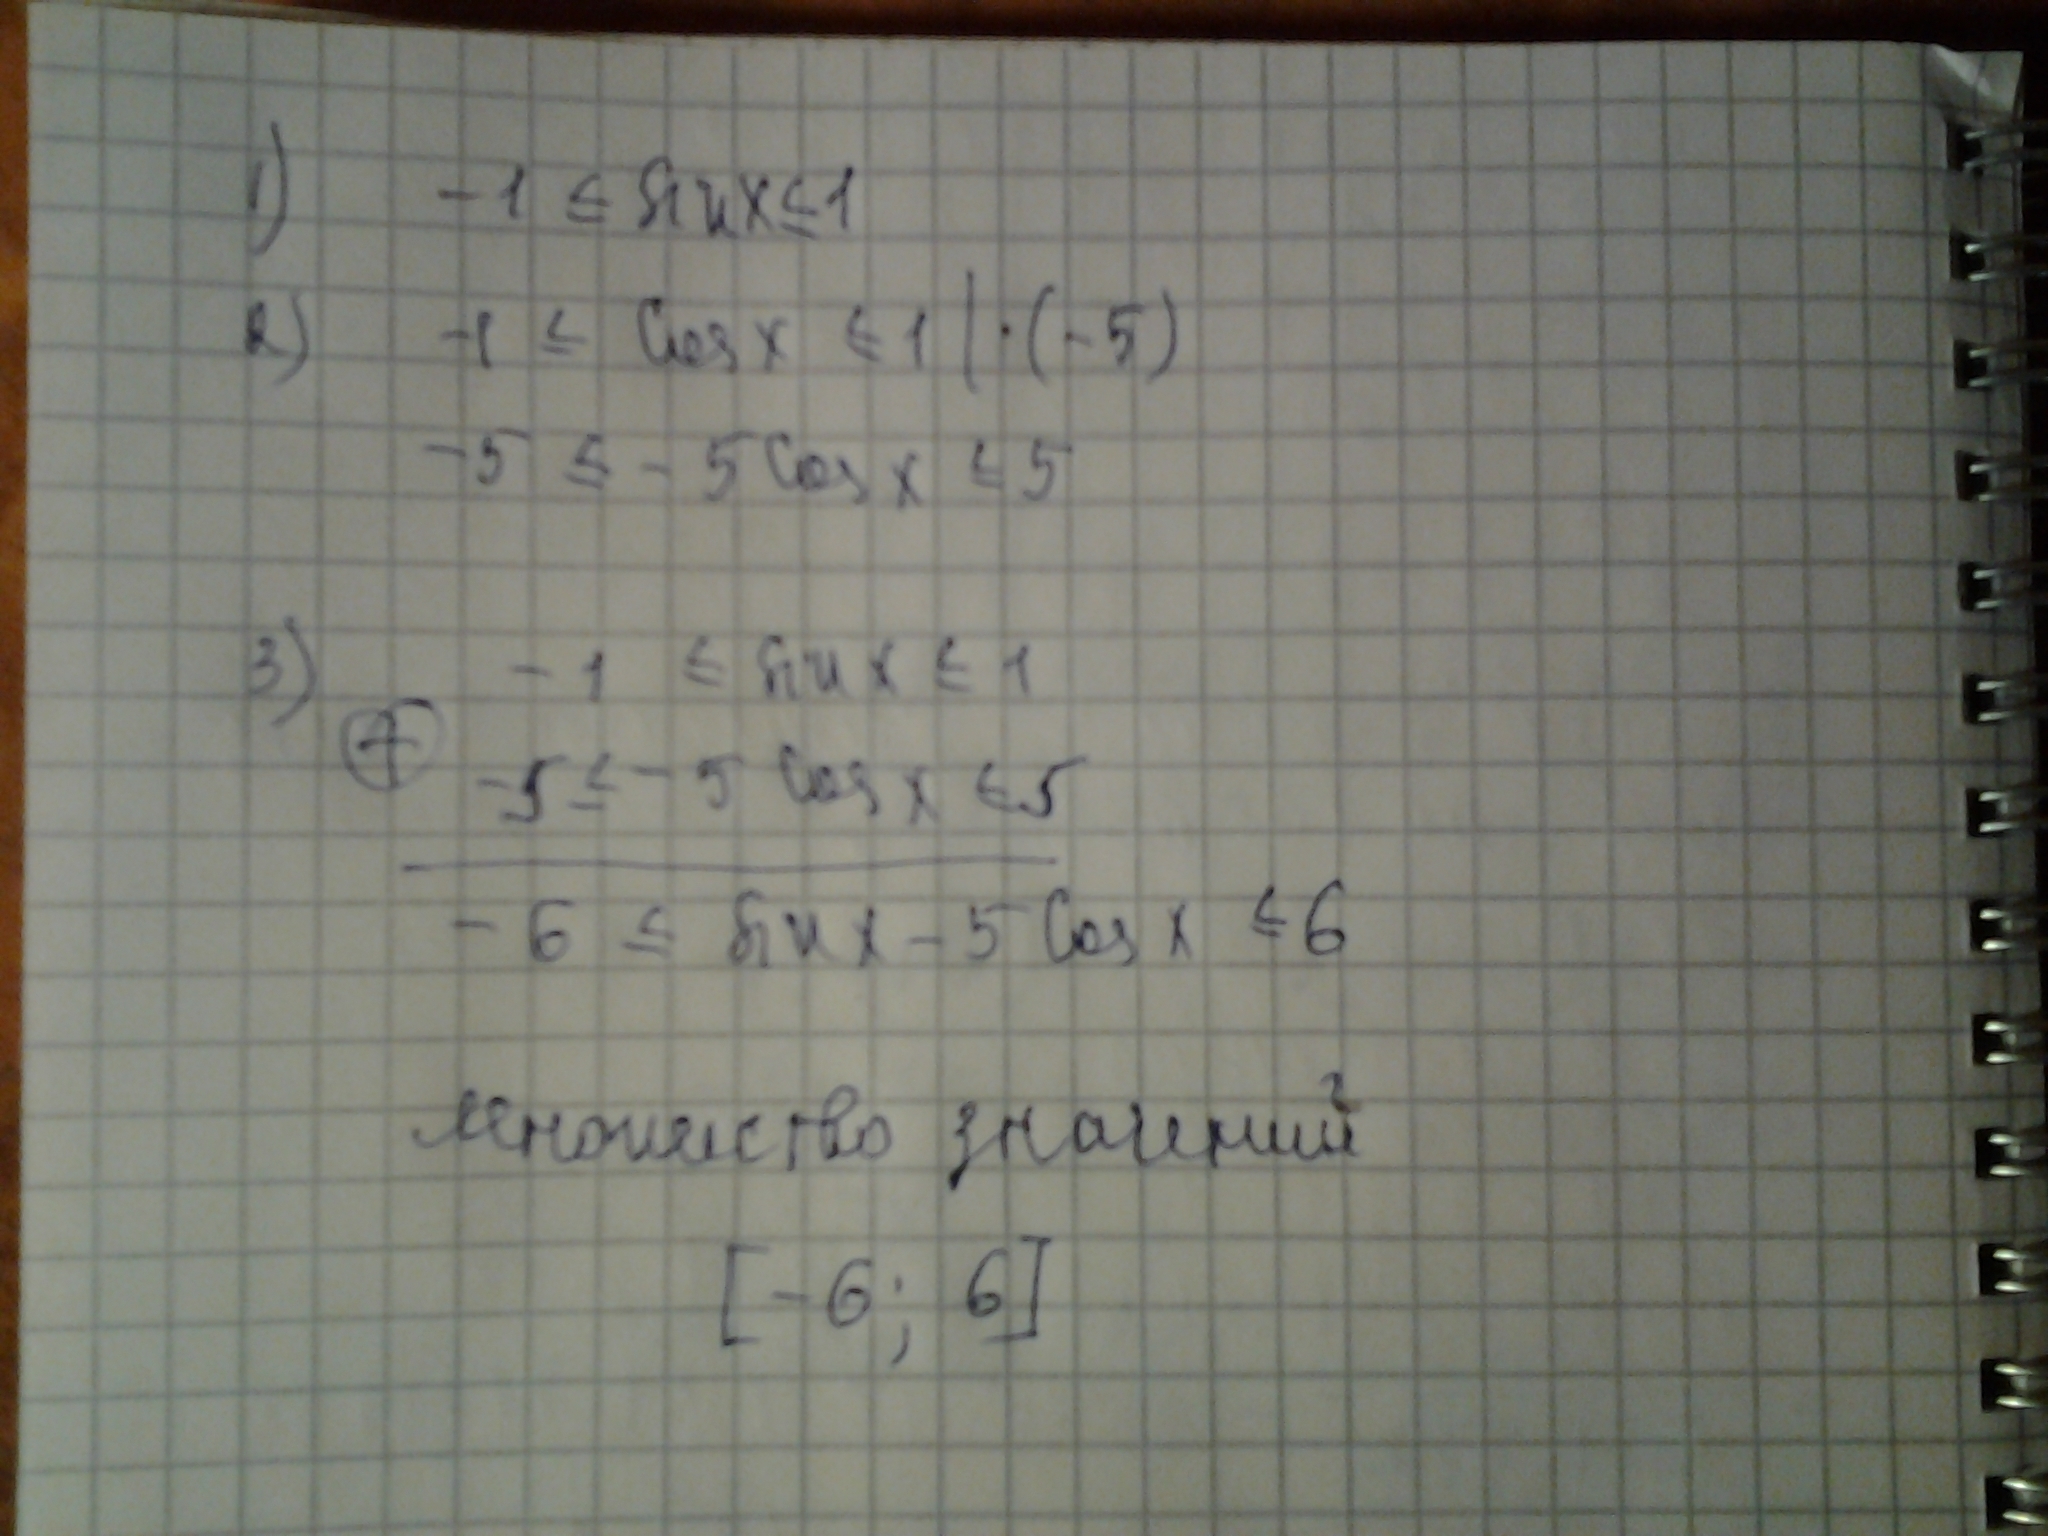 1) -1 ≤ sin x ≤ 1
2) -1 ≤ cos x ≤ 1 | · (-5)
-5 ≤ -5 cos x ≤ 5
3) -1 ≤ sin x ≤ 1
⊕ -5 ≤ -5 cos x ≤ 5
-6 ≤ sin x - 5 cos x ≤ 6
множество значений
[-6; 6]